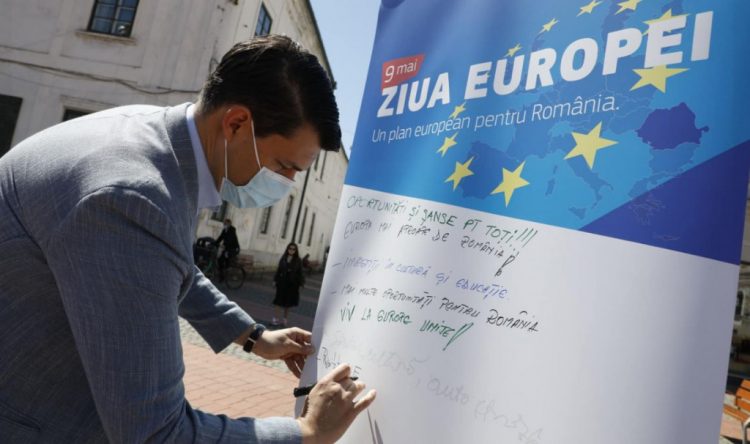 9 mai
ZIUA EUROPEI
Un plan european pentru România.
OPORTUNITĂȚI ȘI ȘANSE PT TOȚI!!!
EUROPA MAI APROAPE DE ROMÂNIA!
- INVESTIȚII ÎN CULTURĂ ȘI EDUCAȚIE.
- MAI MULTE OPORTUNITĂȚI PENTRU ROMÂNIA
VIV LA EUROPE UNITE!